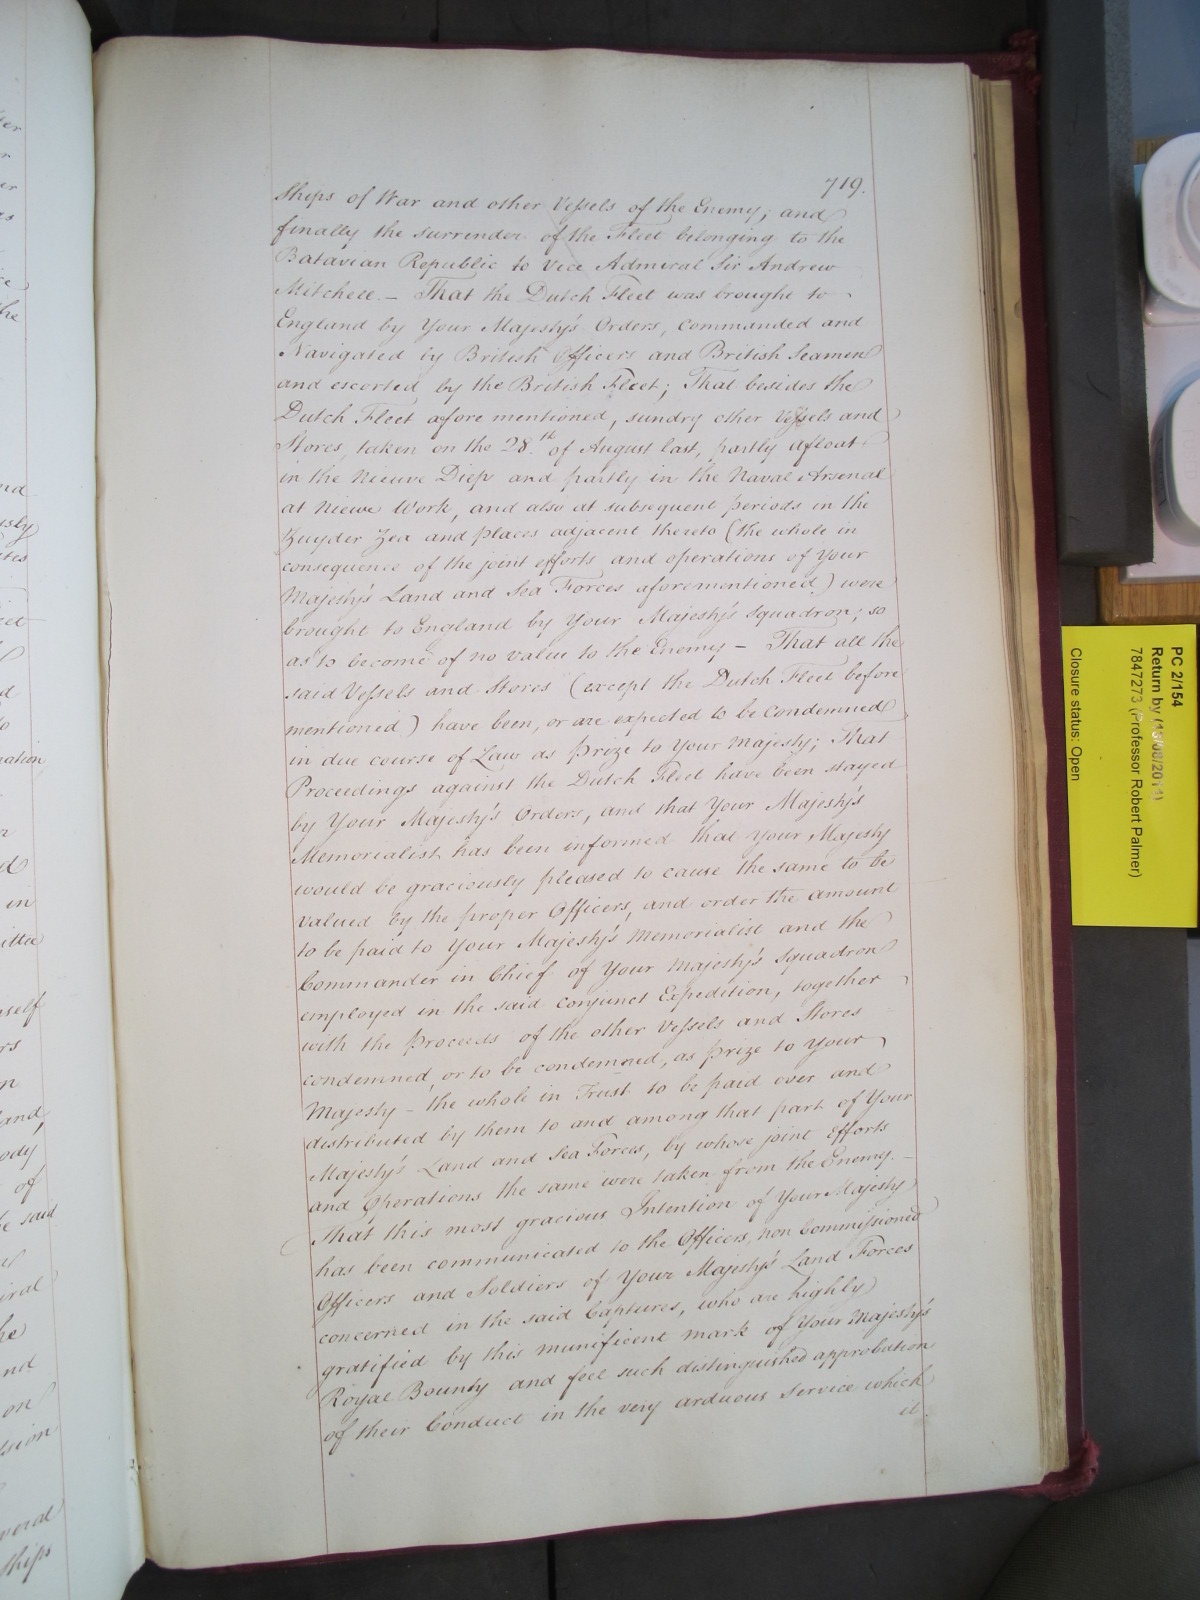 719.
Ships of War and other Vessels of the Enemy; and
finally the surrender of the Fleet belonging to the
Batavian Republic to Vice Admiral Sir Andrew
Mitchell. – That the Dutch Fleet was brought to
England by Your Majesty's Orders, commanded and
Navigated by British Officers and British Seamen
and escorted by the British Fleet; That besides the
Dutch Fleet afore mentioned, sundry other Vessels and
Stores, taken on the 28.th of August last, partly afloat
in the Nieuve Diep and partly in the Naval Arsenal
at Niewe Work, and also at subsequent periods in the
Zuyder Zea and places adjacent thereto (the whole in
consequence of the joint efforts and operations of Your
Majesty's Land and Sea Forces aforementioned) were
brought to England by Your Majesty's Squadron; so
as to become of no value to the Enemy – That all the
said Vessels and Stores (except the Dutch Fleet before
mentioned) have been, or are expected to be condemned
in due course of Law as Prize to Your Majesty; That
Proceedings against the Dutch Fleet have been stayed
by Your Majesty's Orders, and that Your Majesty's
Memorialist has been informed that Your Majesty
would be graciously pleased to cause the same to be
valued by the proper Officers, and order the amount
to be paid to Your Majesty's Memorialist and the
Commander in Chief of Your Majesty's Squadron
employed in the said conjunct Expedition, together
with the Proceeds of the other Vessels and Stores
condemned, or to be condemned, as Prize to Your
Majesty – the whole in Trust to be paid over and
distributed by them to and among that part of Your
Majesty's Land and Sea Forces, by whose joint efforts
and operations the same were taken from the Enemy. –
That this most gracious Intention of Your Majesty
has been communicated to the Officers, non Commissioned
Officers and Soldiers of Your Majesty's Land Forces
concerned in the said Captures, who are highly
gratified by this munificent mark of Your Majesty's
Royal Bounty and feel such distinguished approbation
of their Conduct in the very arduous Service which
it
PC 2/154
Return by (15/08/2011)
7847273 (Professor Robert Palmer)
Closure status: Open